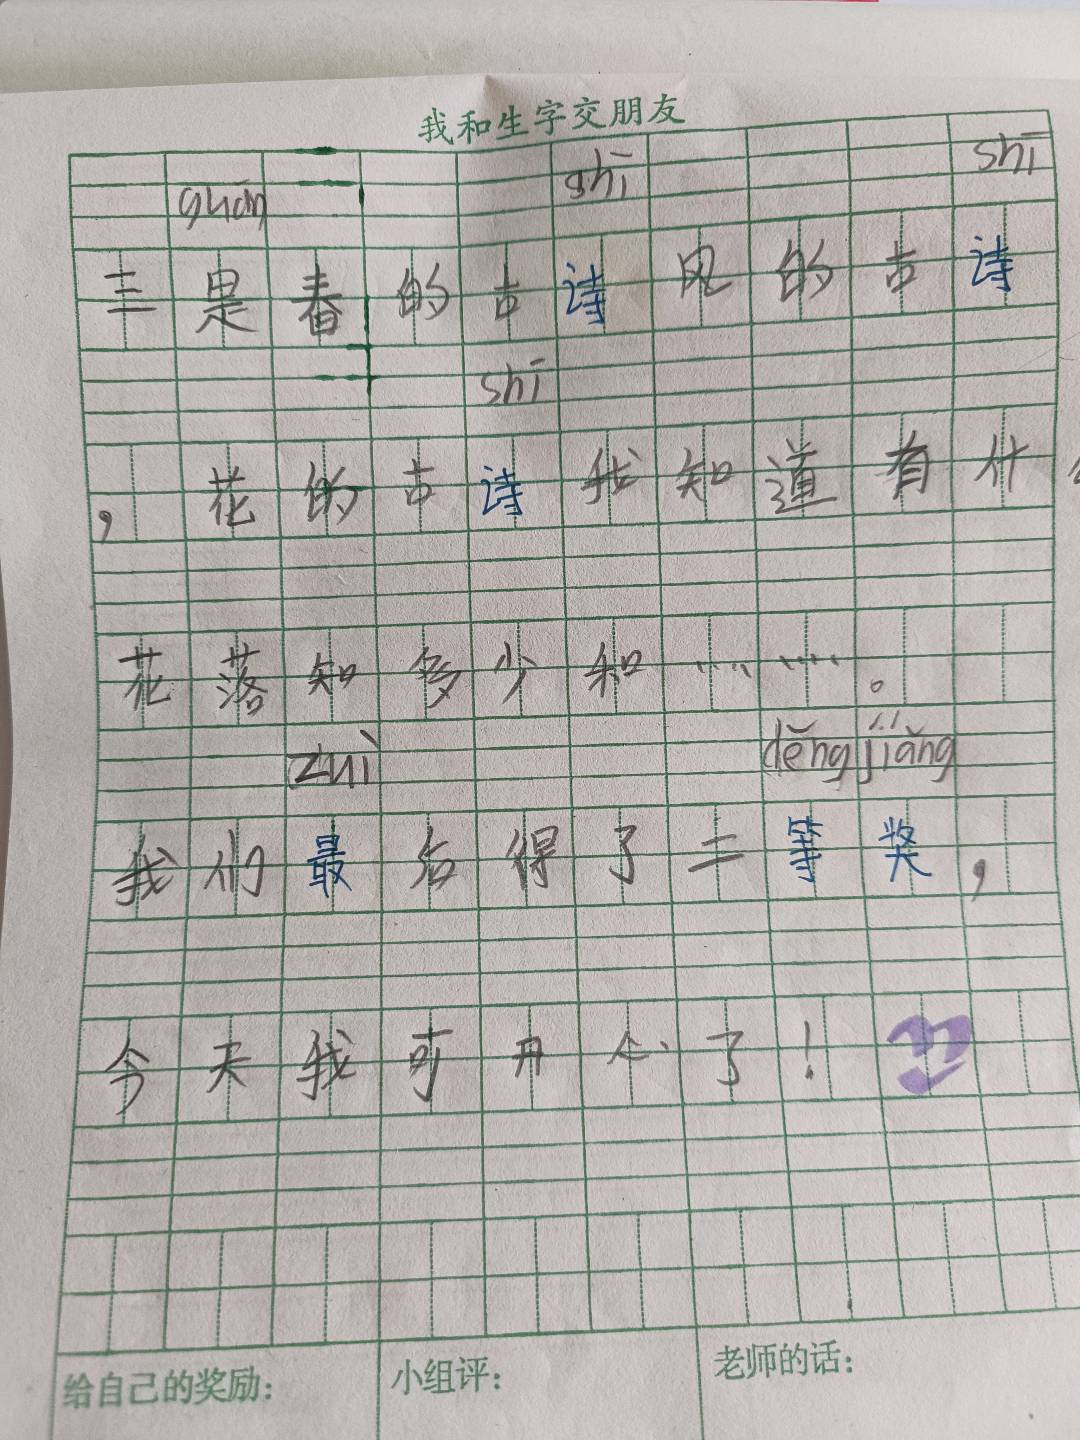 我和生字交朋友
guān shī shī
三是春的古诗风的古诗
shī
，花的古诗我知道有什
花落知多少和…………。
zuì děng jiǎng
我们最后得了二等奖，
今天我可开心了！
给自己的奖励： 小组评： 老师的话：